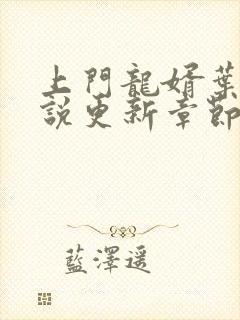 上門龍婿葉
說更新章節
藍澤遥